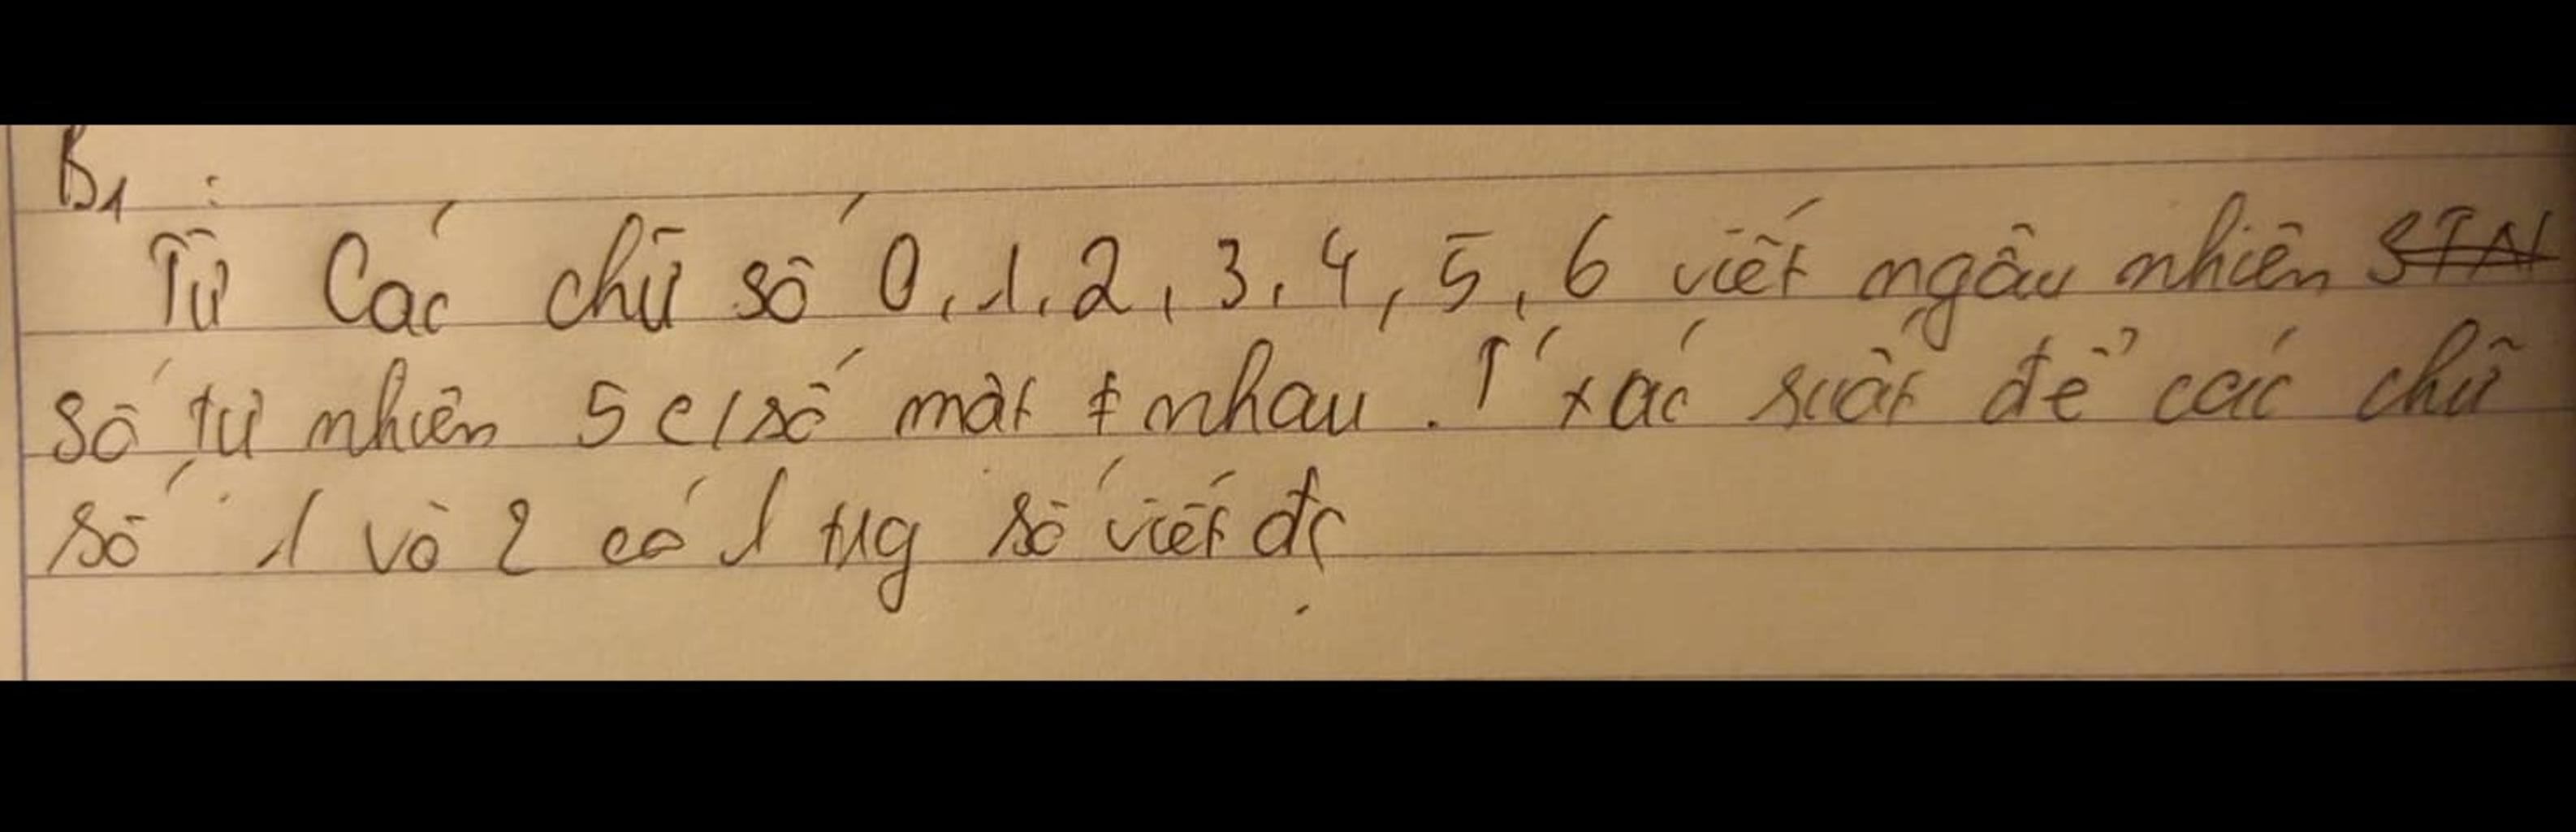 B1 :
Từ Các chữ số 0, 1, 2, 3, 4, 5, 6 viết ngẫu nhiên STN
số tự nhiên 5 c/số mà ≠ nhau. T' xác suất để các chữ
số 1 và 2 có / tng số viết đc